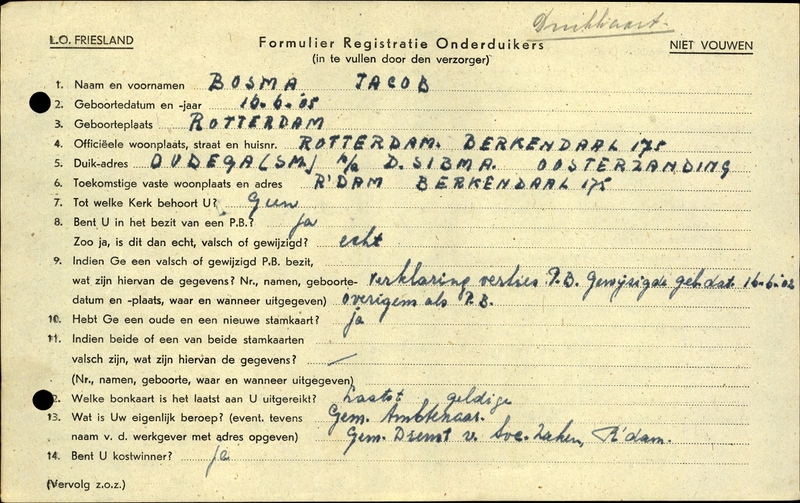 Duikkaart.
L.O. FRIESLAND
Formulier Registratie Onderduikers
NIET VOUWEN
(in te vullen door den verzorger)
1. Naam en voornamen BOSMA JACOB
2. Geboortedatum en -jaar 16-6-'05
3. Geboorteplaats ROTTERDAM
4. Officiëele woonplaats, straat en huisnr. ROTTERDAM. BERKENDAAL 175
5. Duik-adres OUDEGA (SM.) p/a D. SIBMA. OOSTERZANDING
6. Toekomstige vaste woonplaats en adres R'DAM BERKENDAAL 175
7. Tot welke Kerk behoort U? Geen
8. Bent U in het bezit van een P.B.? ja
Zoo ja, is dit dan echt, valsch of gewijzigd? echt
9. Indien Ge een valsch of gewijzigd P.B. bezit,
wat zijn hiervan de gegevens? Nr., namen, geboorte- verklaring verlies P.B. Gewijzigde geb. dat. 16-6-02
datum en -plaats, waar en wanneer uitgegeven) overigens als P.B.
10. Hebt Ge een oude en een nieuwe stamkaart? ja
11. Indien beide of een van beide stamkaarten
valsch zijn, wat zijn hiervan de gegevens? —
(Nr., namen, geboorte, waar en wanneer uitgegeven)
2. Welke bonkaart is het laatst aan U uitgereikt? Laatst geldige
13. Wat is Uw eigenlijk beroep? (event. tevens Gem. Ambtenaar.
naam v. d. werkgever met adres opgeven) Gem. Dienst v. Soc. Zaken, R'dam.
14. Bent U kostwinner? ja
(Vervolg z.o.z.)